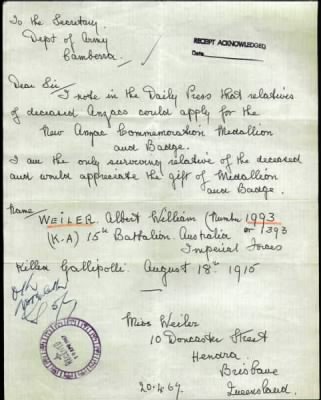 To the Secretary.
Dept of Army
Canberra.
RECEIPT ACKNOWLEDGED
Date
Dear Sir
I note in the Daily Press that relatives
of deceased Anzacs could apply for the
New Anzac Commemoration Medallion
and Badge.
I am the only surviving relative of the deceased
and would appreciate the gift of Medallion
and Badge.
Name
WEILER. Albert William (Number 1993
or 1393
(K.A) 15th Battalion. Australia
Imperial Forces
Killed Gallipolli. August 18th 1915
Miss Weiler
10 Doncaster Street
Hendra.
Brisbane
Queensland.
20.4.67.